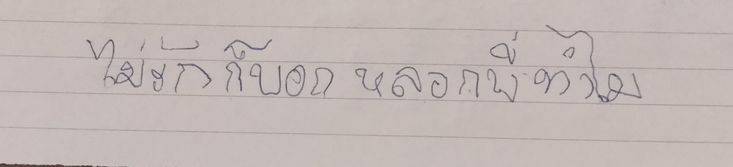 ไม่รักก็บอก หลอกพี่ทำไม